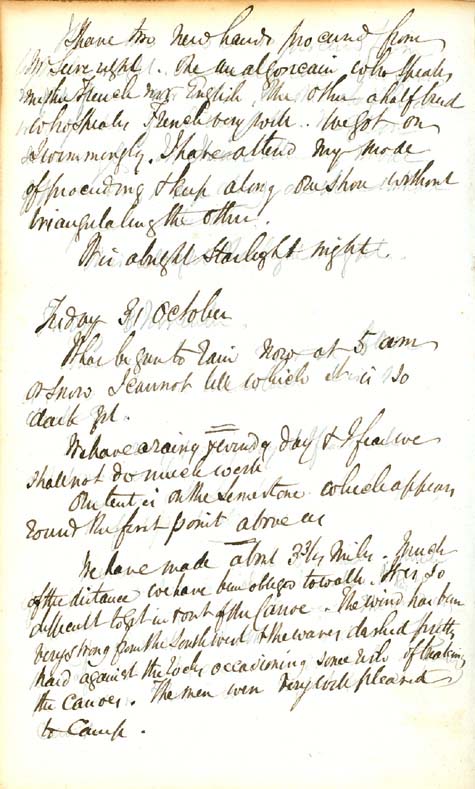 I have two new hands procured from
Mr Siveright. One an algoneain who speaks
neither French nor English, The other a half bred
who speaks French very well. We got on
swimmingly. I have altered my mode
of proceeding & keep along one shore without
triangulating the other.
It is a bright Starlight night.
Friday 31 October
It has began to rain now at 5 am
or snow I cannot tell which it is so
dark yet.
We have a rainy & windy day & I fear we
shall not do much work
Our tent is on the limestone which appears
round the first point above us
We have made about 3 3/4 miles. Much
of the distance we have been obliged to walk. It is so
difficult to get in & out of the Canoe. The wind has been
very strong from the South west & the waves dashed pretty
hard against the rocks occasioning some risk of breaking
the Canoes. The men were very well pleased
to Camp.